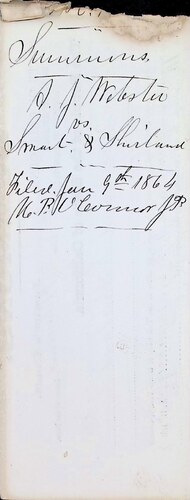 Summons
S. J. Webster
vs.
Smart & Shirland
Filed Jan 9th 1864
M. P. O'Connor JP